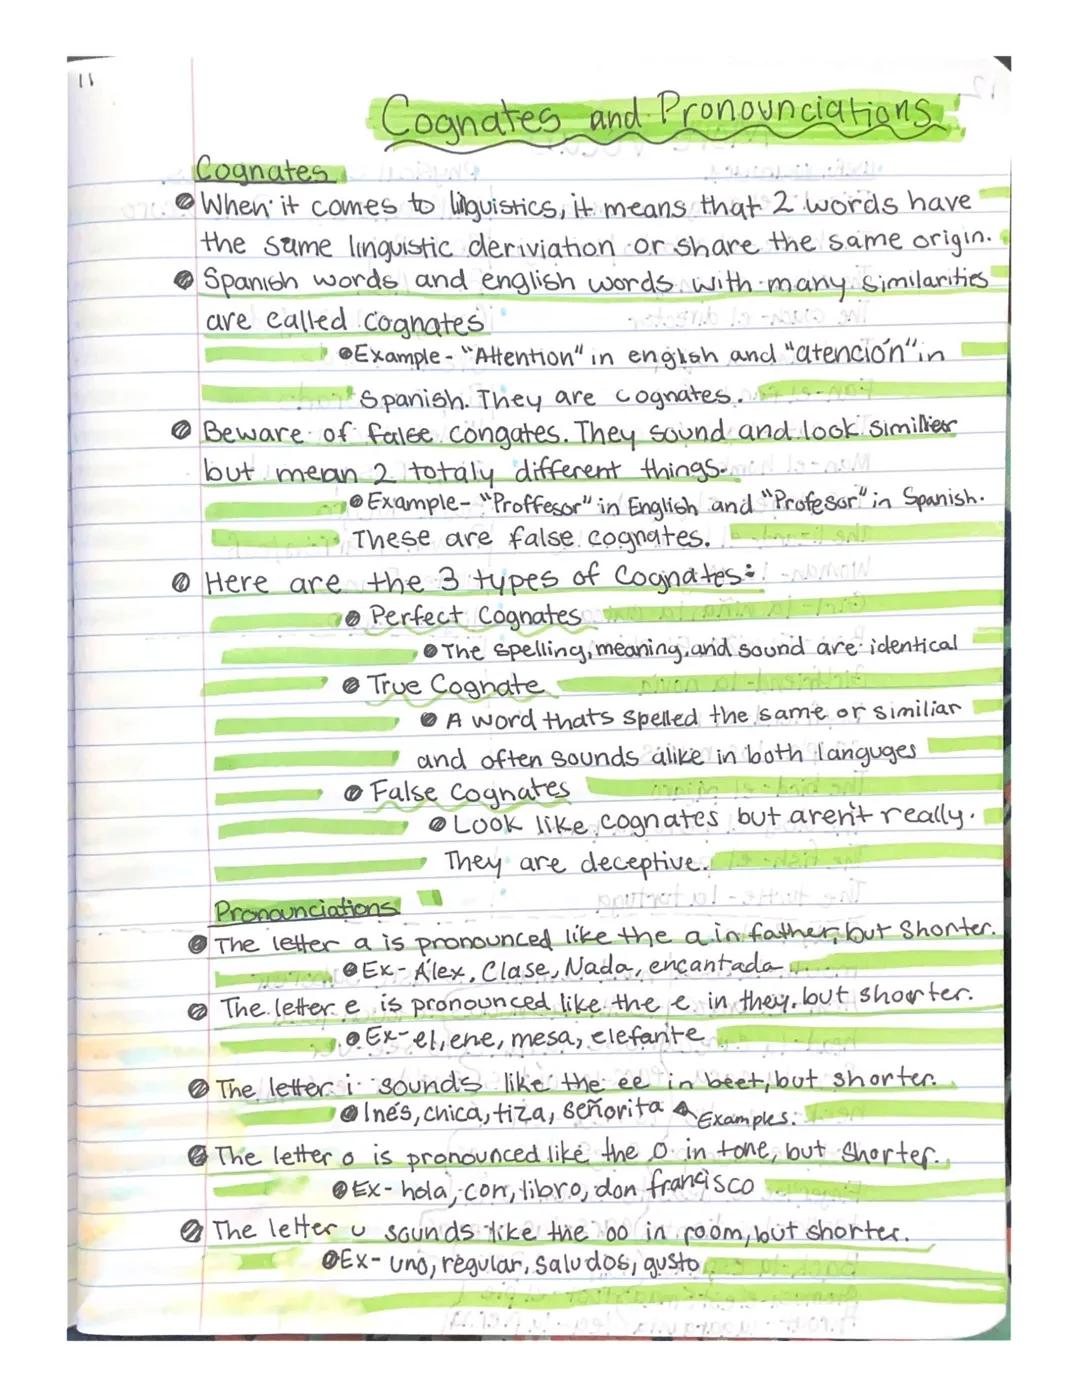 11
Cognates and Pronounciations
Cognates
When it comes to linguistics, it means that 2 words have
the same linguistic deriviation or share the same origin.
Spanish words and english words with many similarities
are called cognates
Example - "Attention" in english and "atención" in
Spanish. They are cognates.
Beware of false congates. They sound and look similier
but mean 2 totaly different things.
Example - "Proffesor" in English and "Profesor" in Spanish.
These are false cognates.
Here are the 3 types of Cognates:
Perfect Cognates
The spelling, meaning, and sound are identical
True Cognate
A word thats spelled the same or similiar
and often sounds alike in both languges
False Cognates
Look like cognates but aren't really.
They are deceptive.
Pronounciations
The letter a is pronounced like the a in father, but Shorter.
Ex - Álex, Clase, Nada, encantada
The letter e is pronounced like the e in they, but shorter.
Ex - el, ene, mesa, elefante
The letter i sounds like the ee in beet, but shorter.
Inés, chica, tiza, señorita Examples.
The letter o is pronounced like the o in tone, but Shorter.
Ex - hola, con, libro, don francisco
The letter u sounds like the oo in room, but shorter.
Ex - uno, regular, saludos, gusto